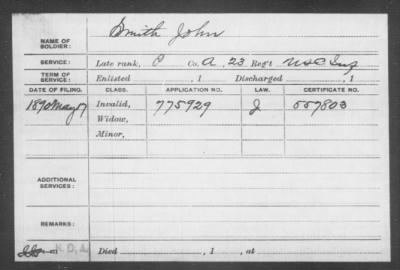 NAME OF SOLDIER: Smith John
SERVICE: Late rank, P Co. A, 23 Reg't U.S.C. Inf
TERM OF SERVICE: Enlisted , 1 Discharged , 1
DATE OF FILING. CLASS. APPLICATION NO. LAW. CERTIFICATE NO.
1890 May 17 Invalid, 775929 J 557803
Widow,
Minor,
ADDITIONAL SERVICES:
REMARKS:
Died , 1 , at